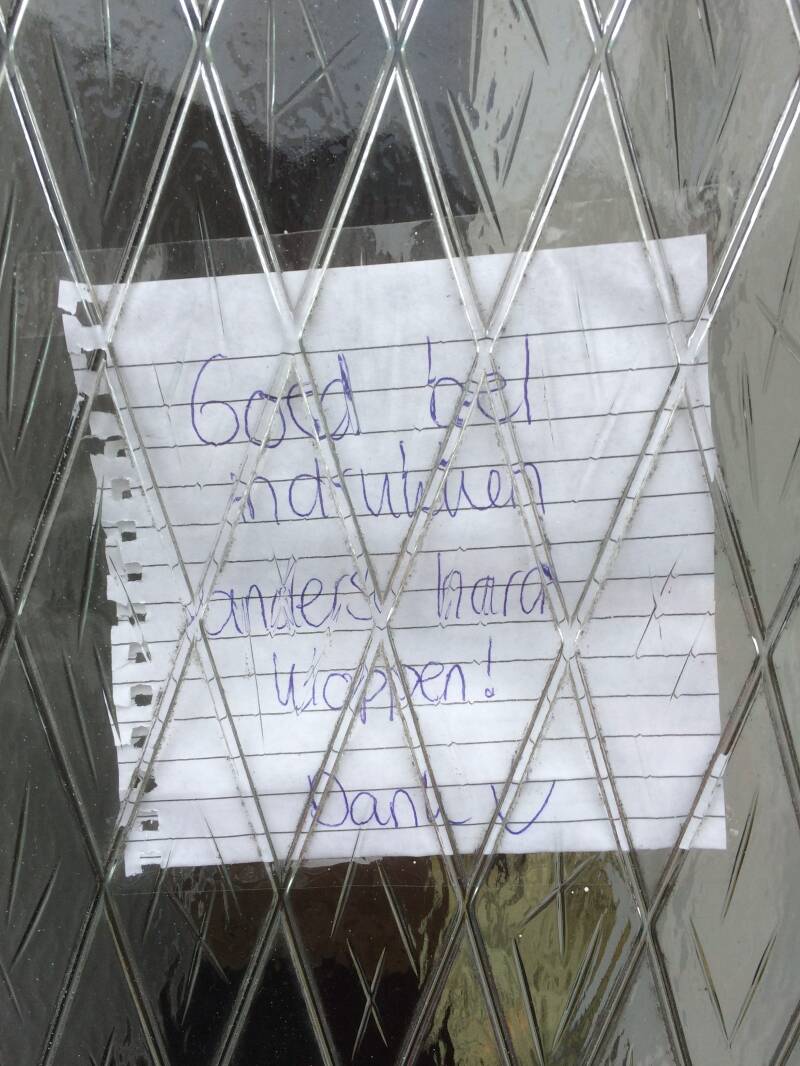 Goed bel
indrukken
anders hard
kloppen!
Dank